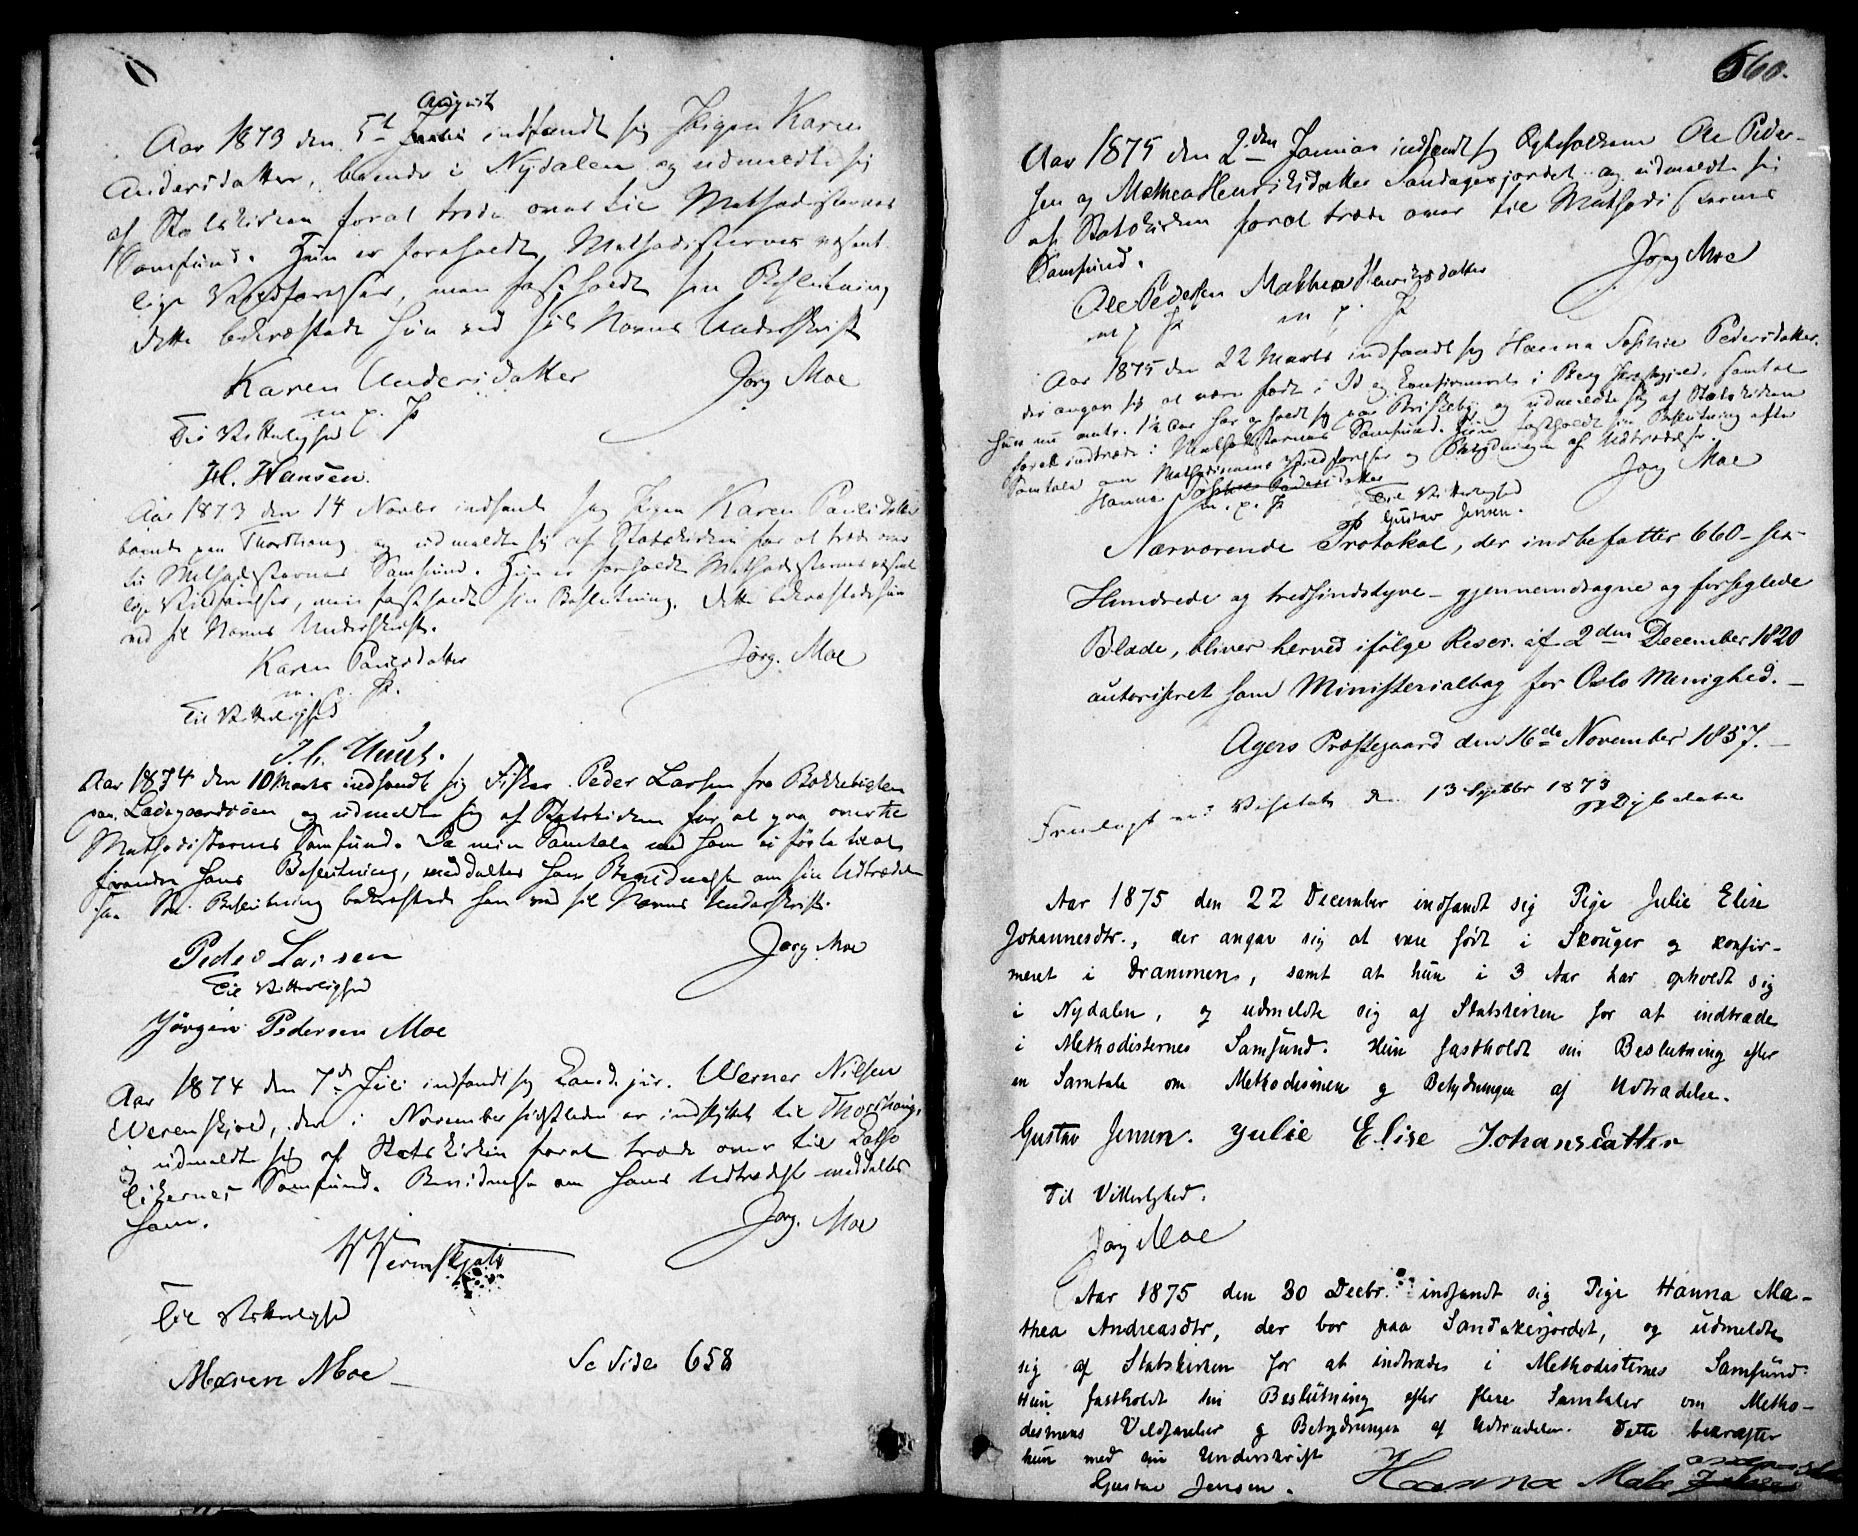 August
Aar 1873 den 5t Juli indfandt sig Pigen Karen
Andersdatter, boende i Nydalen og udmeldte sig
af Statskirken foral træde over til Methodisternes
Samfund. Hun er foreholdt Methodisternes væsent
lige Vildfarelser, men fastholdt sin Beslutning
dette bekræftede hun ved sit Navns Underskrift
Karen Andersdatter Jørg Moe
m. p. P
Til Vitterlighed
H. Hansen.
Aar 1873 den 14 Novbr indfandt sig Pigen Karen Paulsdatter
boende paa Thorshoug og udmeldte sig af Statskirken for at træde over
til Methodisternes Samfund. Hun er forholdt Methodisternes væsent
lige Vildfarelser, men fastholdt sin Beslutning. Dette bekræftede hun
ved sit Navns Underskrift.
Karen Paulsdatter Jørg. Moe
m. p. P.
Til Vitterlighed
Aar 1874 den 10 Marts indfandt sig Fisker Peder Larsen fra Bokkebielen
paa Ladegaardsøen og udmeldte sig af Statskirken for at gaa over til
Methodisternes Samfund. Da min Samtale med ham ei førte til at
forandre hans Beslutning, meddeltes ham Bevidnelse om sin Udtrædelse
Sin Beslutning bekræftede han ved sit Navns Underskrift.
Peder Larsen Jørg Moe
Til Vitterlighed
Jørgen Pedersen Moe
Aar 1874 den 7d Juli indfandt sig Cand. jur. Werner Nilsen
Werenskjold, der i November sidstleden er indflyttet til Thorshoug,
og udmeldte sig af Statskirken foral træde over til Catho
likernes Samfund. Bevidnelse om hans Udtrædelse meddeltes
ham. Jørg. Moe
W Werenskjold
Til Vitterlighed
Maren Moe
Se Side 658
660.
Aar 1875 den 2den Januar indfandt sig Ægtefolkene Ole Peder-
sen og Mathea Henriksdatter Sandagerjordet og udmeldte sig
af Statskirken foral træde over til Methodisternes
Samfund. Jørg Moe
Ole Pedersen Mathea Henriksdatter
m p P m p. P
Aar 1875 den 22 Marts indfandt sig Hanna Sophie Pedersdatter.
der angav sig at være født i Id og Confirmeret i Berg Præstegjeld, samt at
hun nu omtr. 1½ Aar har opholdt sig paa Briskeby og udmeldte sig af Statskirken
foral indtræde i Methodisternes Samfund. Hun fastholdt sin Beslutning efter
Samtale om Methodismens Vildfarelser og Betydningen af Udtrædelse.
Hanna Sophie Pedersdatter Jørg Moe
m. p. P Til Vitterlighed
Gustav Jensen.
Nærværende Protokol, der indbefatter 660 - sex-
Hundrede og tredsindstyve - gjennemdragne og forseglede
Blade, bliver herved ifølge Rescr. af 2den December 1820
autoriseret som Ministerialbog for Oslo Menighed. -
Agers Præstegaard den 16de November 1857. -
Fremlagt ved Visitats den 13 Septbr 1873
Aar 1875 den 22 December indfandt sig Pige Julie Elise
Johannesdtr., der angav sig at være født i Skouger og konfir-
meret i Drammen, samt at hun i 3 Aar har opholdt sig
i Nydalen, og udmeldte sig af Statskirken for at indtræde
i Methodisternes Samfund. Hun fastholdt sin Beslutning efter
en Samtale om Methodismen og Betydningen af Udtrædelse.
Gustav Jensen. Julie Elise Johansdatter
Til Vitterlighed.
Jørg Moe
Aar 1875 den 30 Decbr. indfandt sig Pige Hanna Ma-
thea Andreasdtr, der bor paa Sandakerjordet, og udmeldte
sig af Statskirken for at indtræde i Methodisternes Samfund.
Hun fastholdt sin Beslutning efter flere Samtaler om Metho-
dismens Vildfarelser og Betydningen af Udtrædelse. Dette bekræfter
hun med sin Underskrift
Gustav Jensen. Hanna Mate